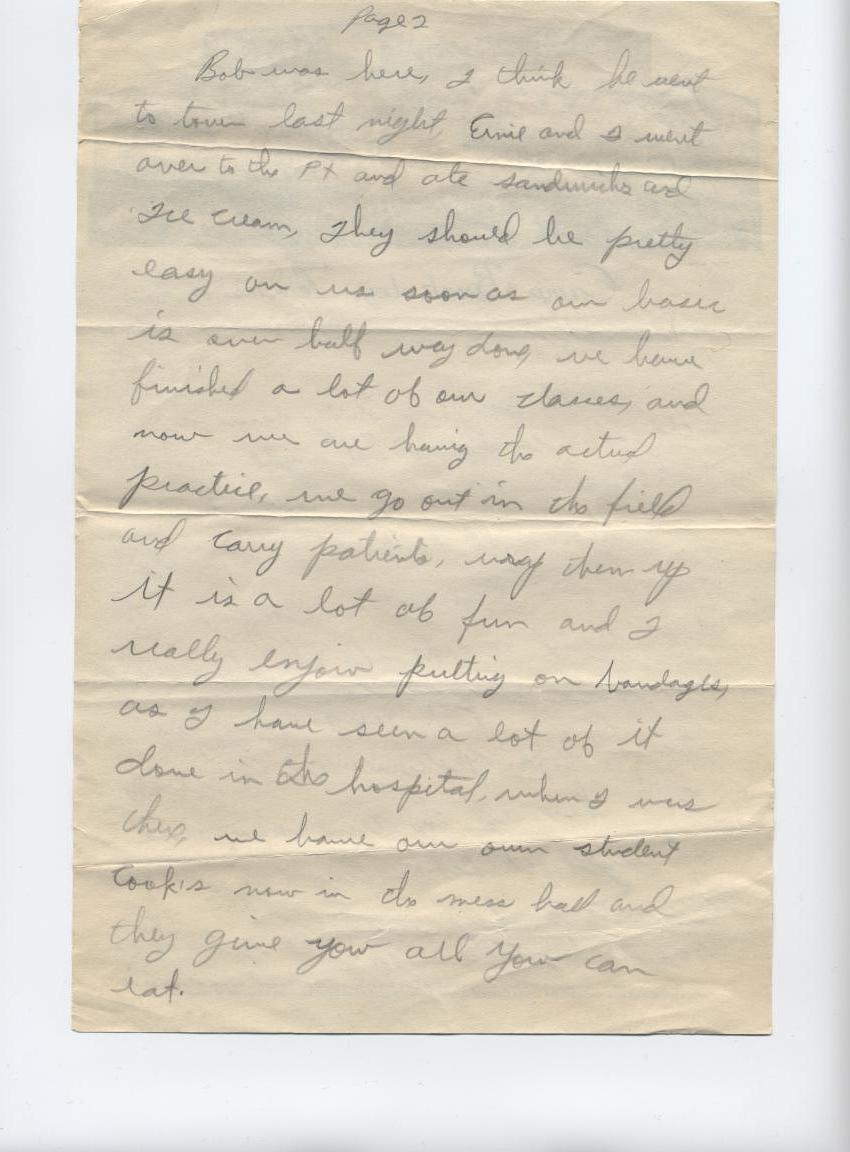 Page 2
Bob was here, I think he went
to town last night, Ernie and I went
over to the PX and ate sandwichs and
Ice cream, They should be pretty
easy on us soon as our basic
is over half way done, we have
finished a lot of our classes, and
now we are having the actual
practice, we go out in the field
and carry patients, wrap them up
it is a lot of fun and I
really enjoy putting on bandages,
as I have seen a lot of it
done in the hospital, when I was
there, we have our own student
Cook's now in the mess hall and
they give you all you can
eat.